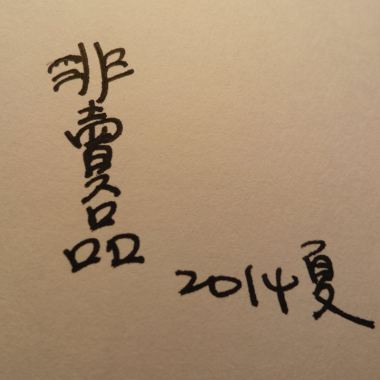 非賣品
2014夏